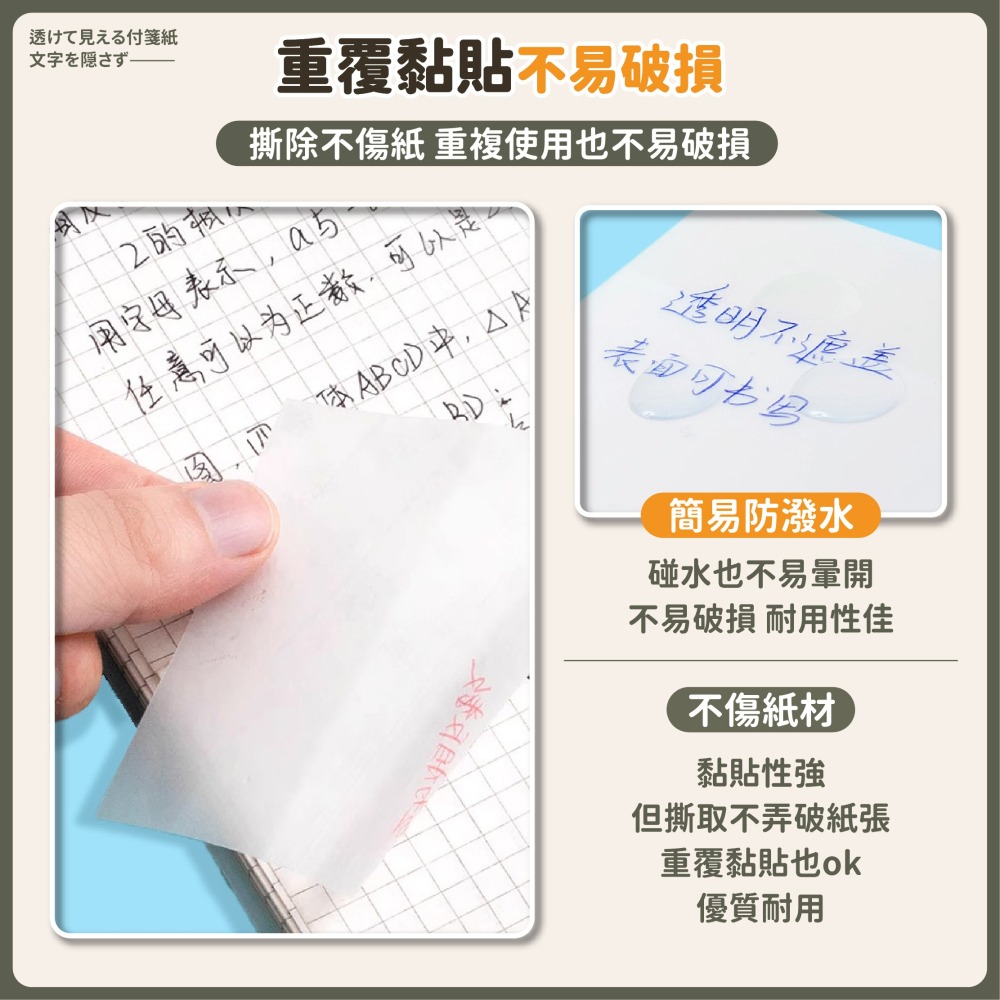 透けて見える付箋紙
文字を隠さず——
重覆黏貼不易破損
撕除不傷紙 重複使用也不易破損
2的相
用字母表示，a与
任意可以为正数，可以是
图，四 ABCD中，△A
BD
透明不遮盖
表面可书写
簡易防潑水
碰水也不易暈開
不易破損 耐用性佳
不傷紙材
黏貼性強
但撕取不弄破紙張
重覆黏貼也ok
優質耐用